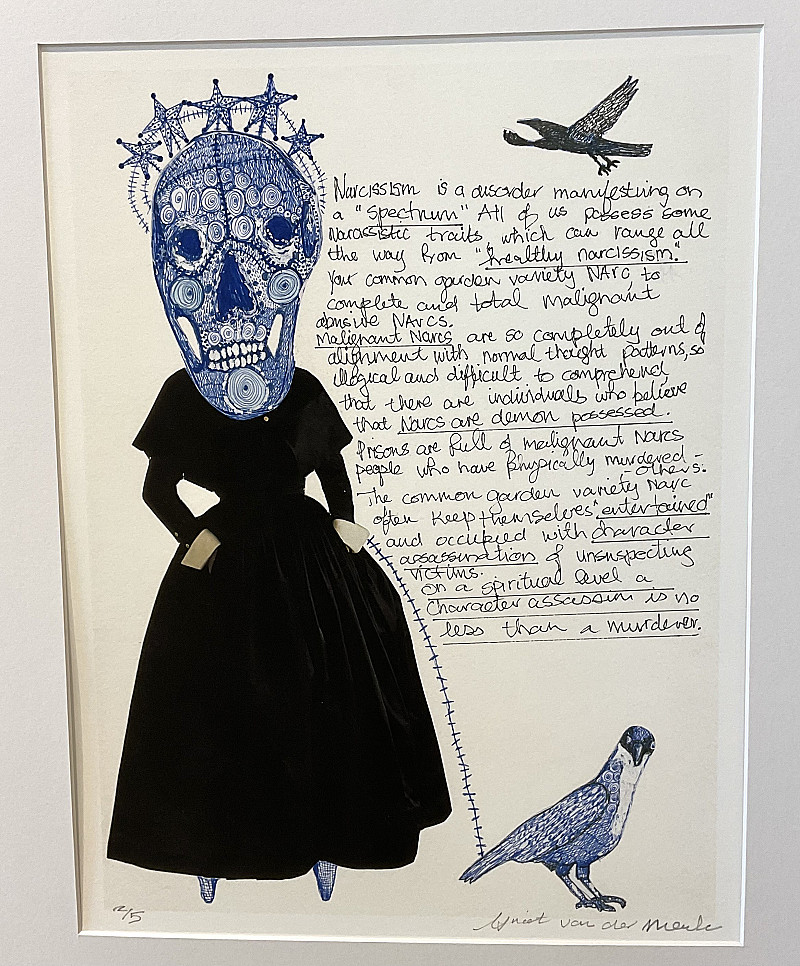 Narcissism is a disorder manifesting on
a "spectrum" All of us possess some
Narcassistic traits which can range all
the way from "healthy narcissism."
Your common garden variety NArc, to
complete and total malignant
abusive NArcs.
Malignant Narcs are so completely out of
alighnment with normal thought patterns, so
illogical and difficult to comprehend,
that there are individuals who believe
that Narcs are demon possessed.
Prisons are full of malignant Narcs
people who have physically murdered -
others.
The common garden variety Narc
often keep themselves "entertained"
and occupied with character
assassination of unsuspecting
victims.
On a spiritual level a
Character assassin is no
less than a murderer.
2/5
van der Merwe